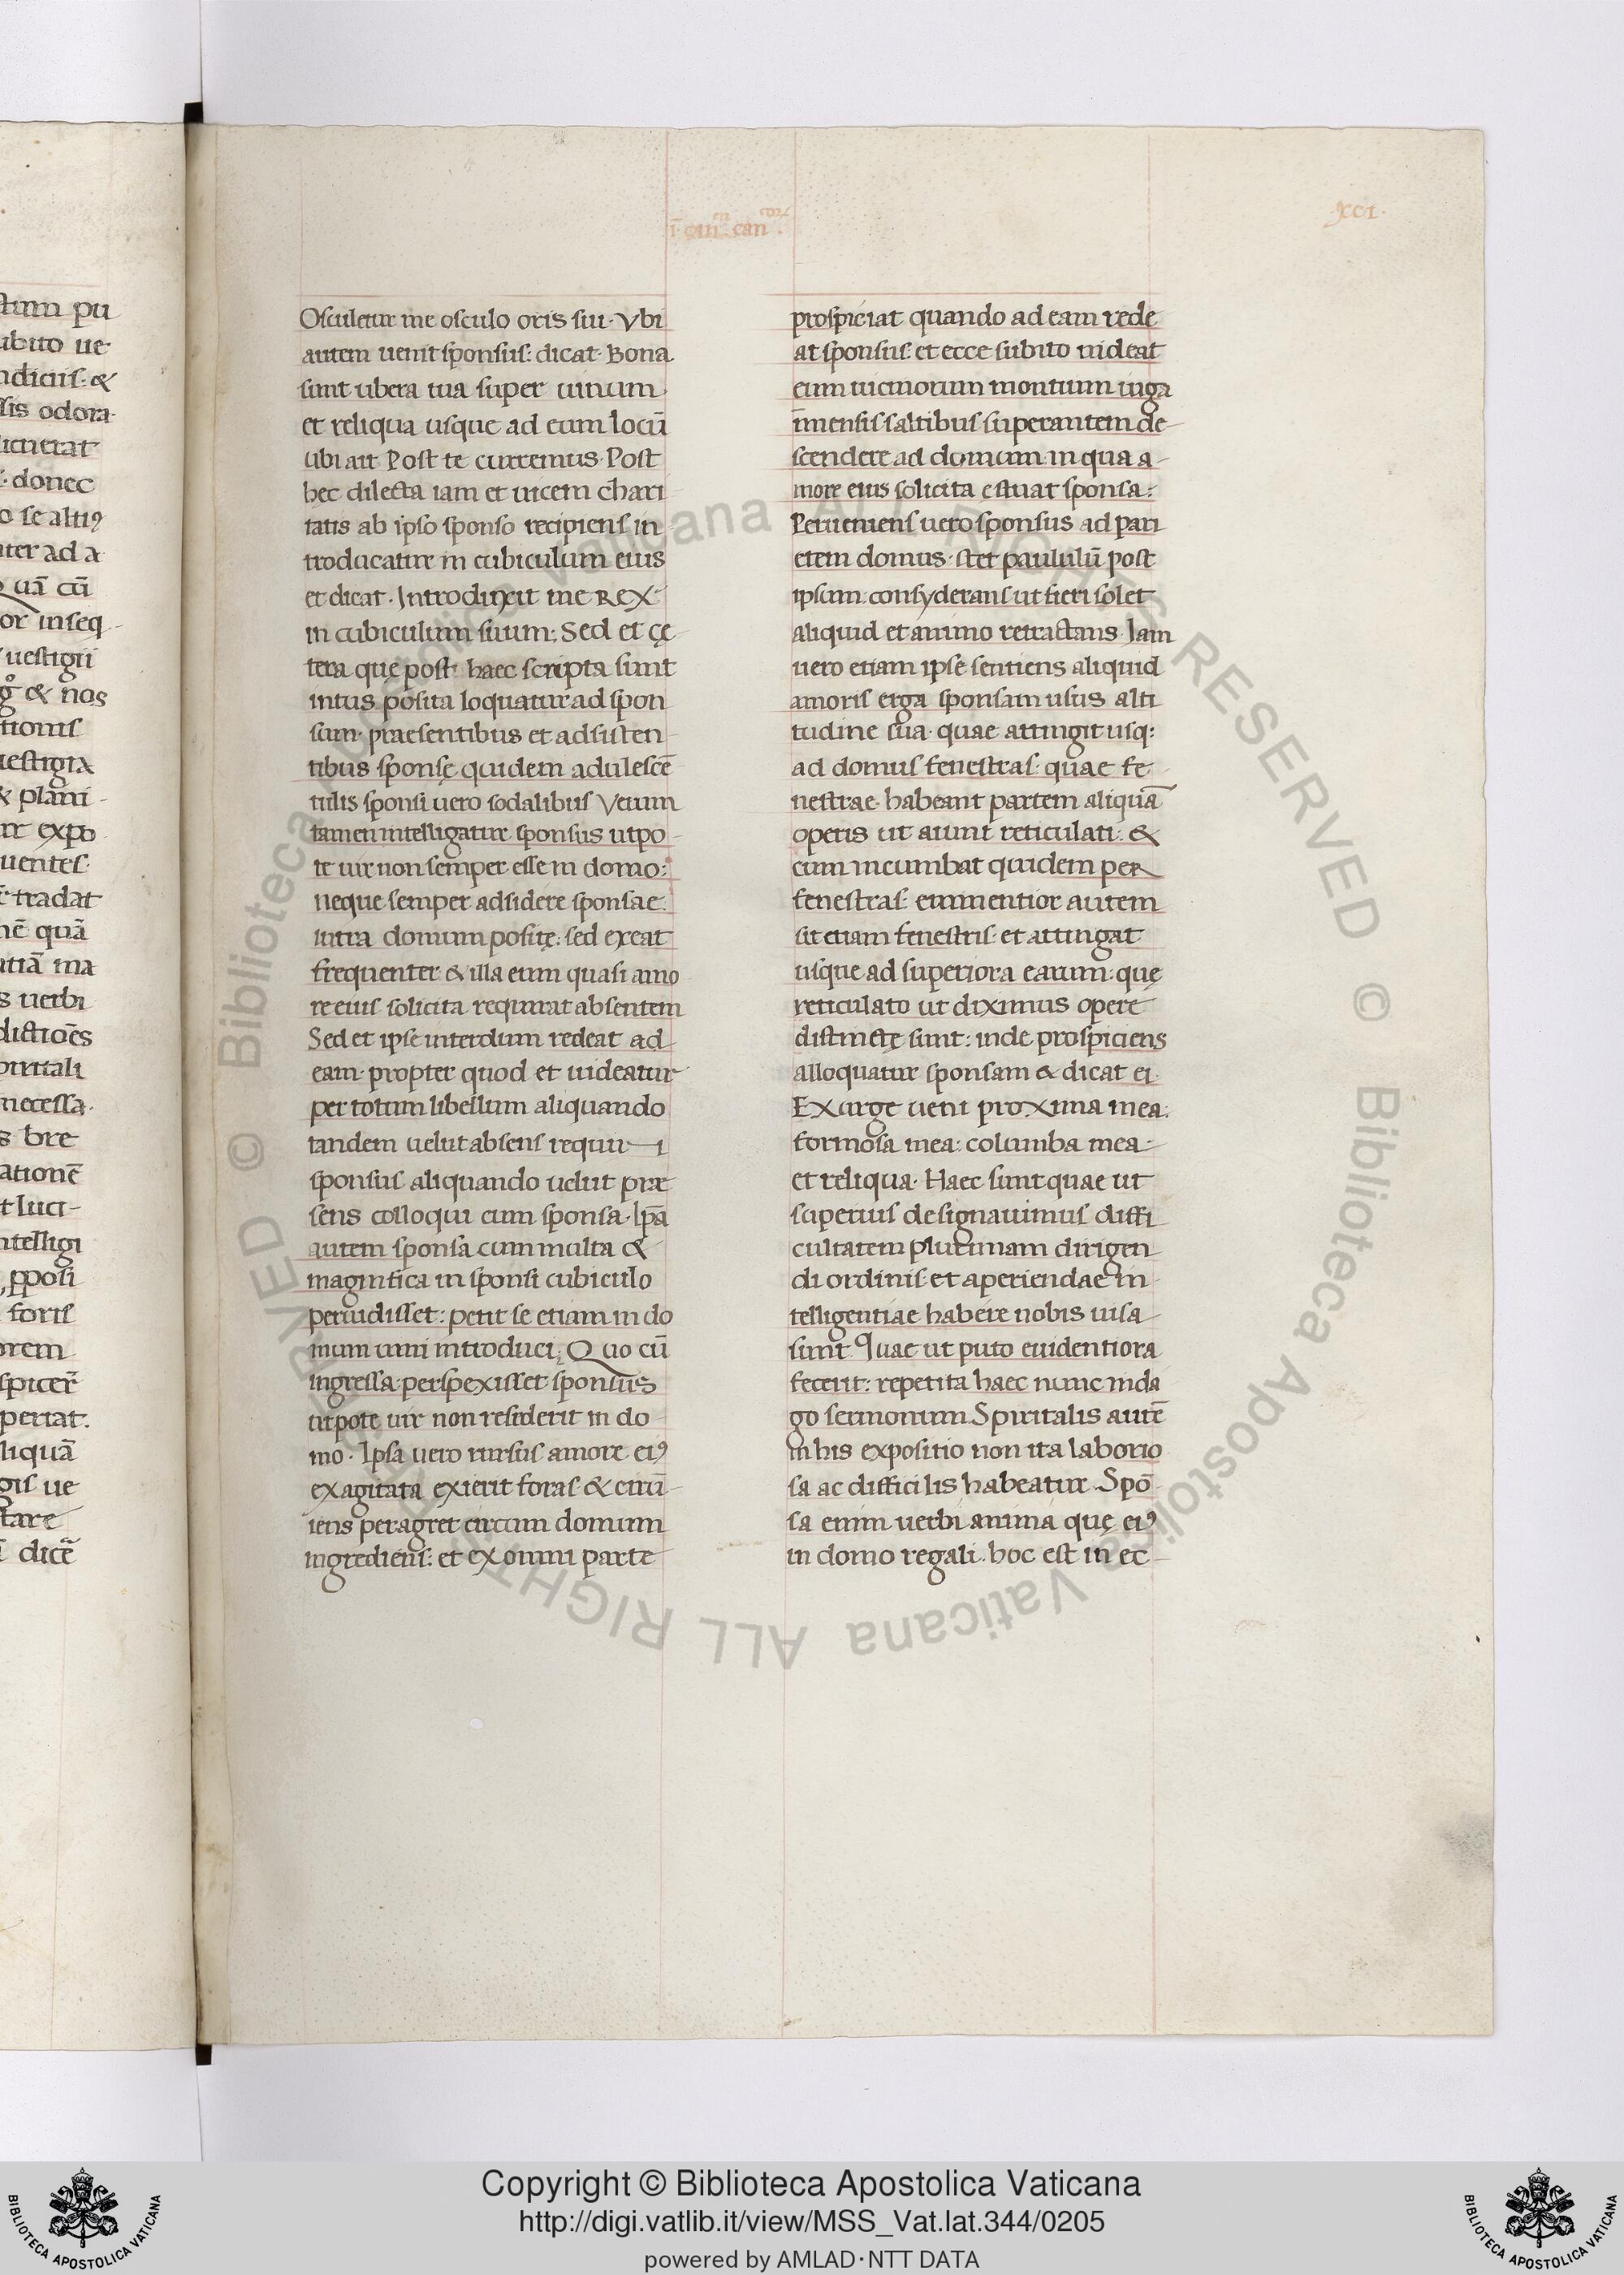 ī can̄ can
xcı.
Osculetur me osculo oris sui. Vbi
autem uenit sponsus: dicat. Bona
sunt ubera tua super uinum.
et reliqua usque ad eum locū
ubi ait Post te curremus. Post
hec dilecta iam et uicem chari
tatis ab ipso sponso recipiens in-
troducatur in cubiculum eius
et dicat. Introduxit me REX
in cubiculum suum: Sed et çę
tera quę post haec scripta sunt
intus posita loquatur ad spon
sum. praesentibus et adsisten-
tibus sponsę quidem adulescē
tulis sponsi uero sodalibus Verum
tamen intelligatur sponsus utpo-
te uir non semper esse in domo:
neque semper adsidere sponsae
intra domum positę: sed exeat
frequenter & illa eum quasi amo
re eius solicita requirat absentem
Sed et ipse interdum redeat ad
eam. propter quod et uideatur
per totum libellum aliquando
tandem uelut absens requiri
sponsus aliquando uelut præ
sens colloqui cum sponsa. Ip̄a
autem sponsa cum multa &
magnifica in sponsi cubiculo
peruidisset: petit se etiam in do
mum uini introduci. Quo cū
ingressa perspexisset sponsus
utpote uir non resederit in do-
mo. Ipsa uero rursus amore eiꝰ
exagitata exierit foras & circū-
iens peragret circum domum
ingrediens: et ex omni parte
prospiciat quando ad eam rede
at sponsus: et ecce subito uideat
eum uicinorum montium iuga
īmensis saltibus superantem de-
scendere ad domum in qua a-
more eius solicita estuat sponsa:
Perueniens uero sponsus ad pari
etem domus. stet paululū post
ipsum consyderans ut fieri solet
aliquid et animo retractans. Iam
uero etiam ipse sentiens aliquid
amoris erga sponsam usus alti
tudine sua. quae attingit usq:
ad domus fenestras: quae fe-
nestrae habeant partem aliquā
operis ut aiunt reticulati: &
cum incumbat quidem per
fenestras: eminentior autem
sit etiam fenestris: et attingat
usque ad superiora earum: quę
reticulato ut diximus opere
distinctę sunt: inde prospiciens
alloquatur sponsam & dicat ei.
Exurge ueni proxima mea:
formosa mea: columba mea:
et reliqua. Haec sunt quae ut
superius designauimus diffi
cultatem plurimam dirigen
di ordinis et aperiendae in-
telligentiae habere nobis uisa
sunt. Quae ut puto euidentiora
fecerit: repetita haec nunc inda
go sermonum. Spiritalis autē
in his expositio non ita laborio
sa ac difficilis habeatur. Spō
sa enim uerbi anima quę eiꝰ
in domo regali. hoc est in ec-
Copyright © Biblioteca Apostolica Vaticana
http://digi.vatlib.it/view/MSS_Vat.lat.344/0205
powered by AMLAD·NTT DATA
BIBLIOTECA APOSTOLICA VATICANA
BIBLIOTECA APOSTOLICA VATICANA
© Biblioteca Apostolica Vaticana ALL RIGHTS RESERVED © Biblioteca Apostolica Vaticana ALL RIGHTS RESERVED